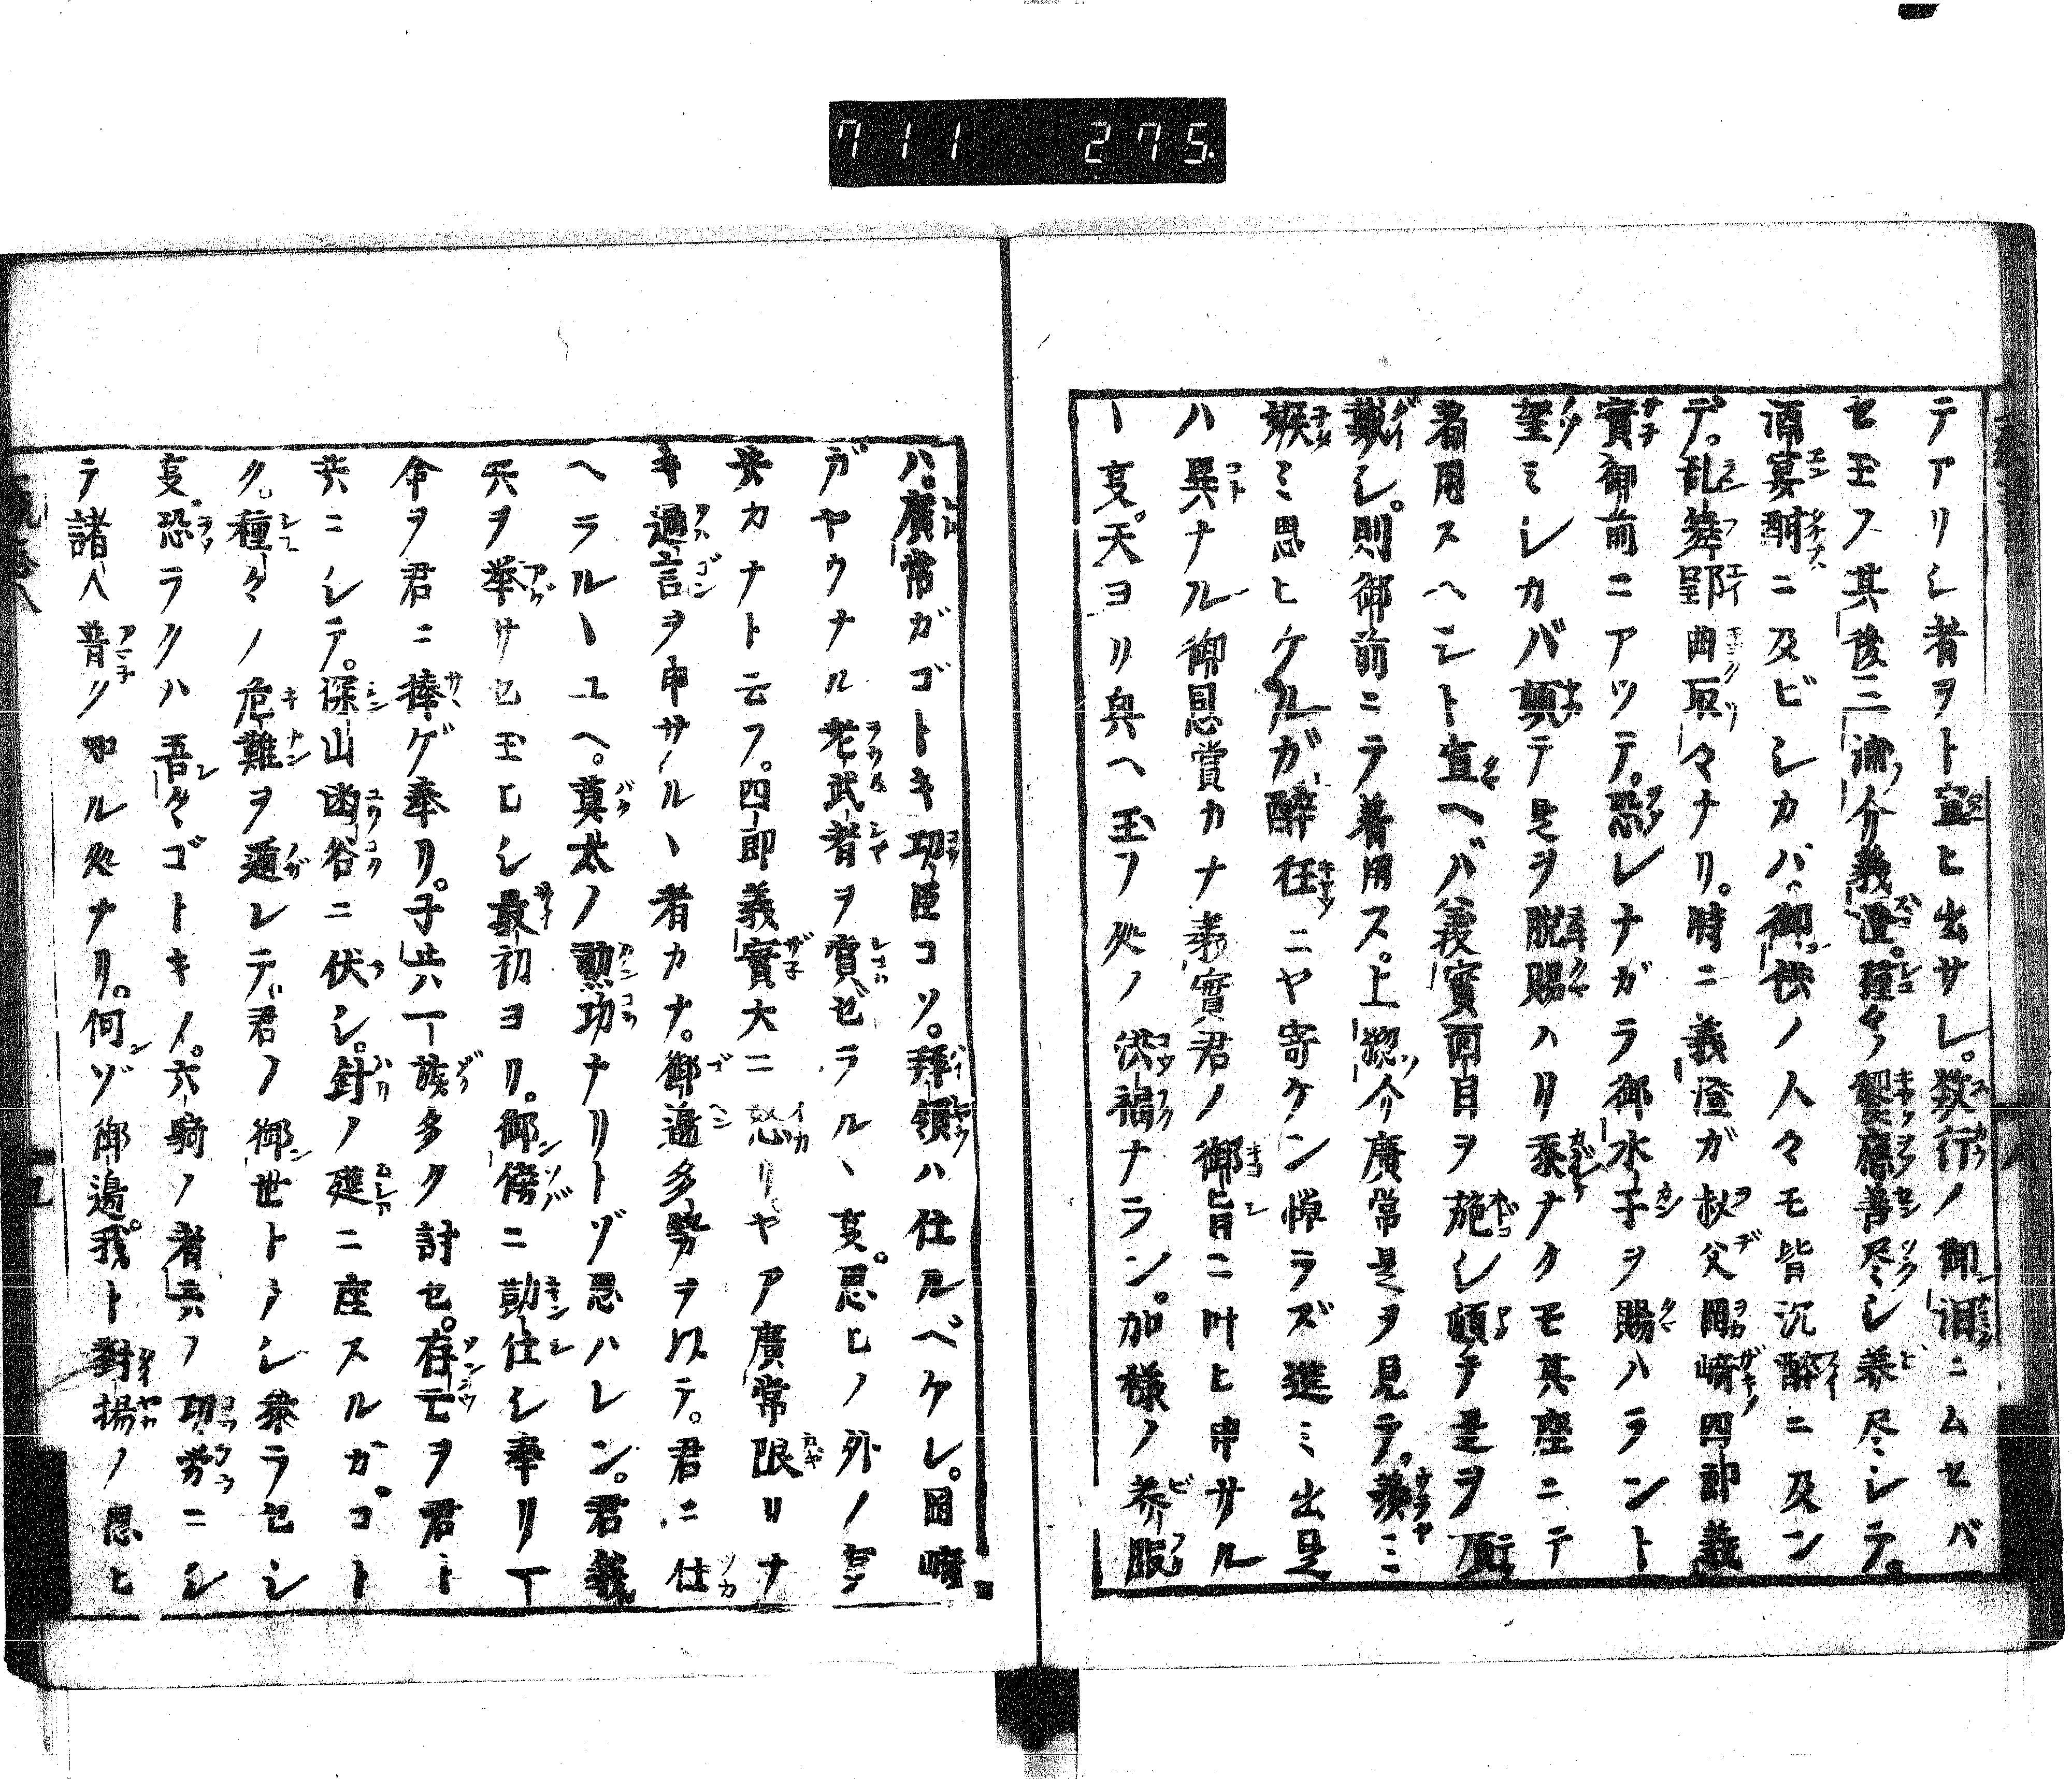 711 275.
テアリシ者ヲト宣ヒ出サレ。数行ノ御泪ニムセバ
セ玉フ其後三浦介義澄。種々饗應善尽シ美尽シテ。
酒宴酣ニ及ビシカバ、御供ノ人々モ皆沉醉ニ及ン
デ。乱舞郢曲取々ナリ。時ニ義澄ガ叔父岡﨑四郎義
實御前ニアツテ。恐レナガラ御水干ヲ賜ハラント
望ミシカバ頓テ是ヲ脱賜ハリ忝ナクモ其座ニテ
着用スヘシト宣ヘバ義實面目ヲ施シ頓テ是ヲ頂
戴シ。則御前ニテ着用ス。上総介廣常是ヲ見テ。羨ミ
嫉ミ思ヒケルガ醉狂ニヤ寄ケン憚ラズ進ミ出是
ハ異ナル御恩賞カナ義實君ノ御旨ニ叶ヒ申サル
ヽ叓。天ヨリ與ヘ玉フ処ノ洪福ナラン。加様ノ美服
ハ。廣常ガゴトキ功臣コソ。拜領ハ仕ルベケレ。岡﨑
ガヤウナル老武者ヲ賞ゼラルヽ叓。思ヒノ外ノ叓
共カナト云フ。四郎義實大ニ怒リヤア廣常限リナ
キ過言ヲ申サルヽ者カナ。御邊多勢ヲ以テ。君ニ仕
ヘラルヽユヘ。莫太ノ勲功ナリトゾ思ハレン。君義
兵ヲ挙サセ玉ヒシ最初ヨリ。御傍ニ勤仕シ奉リ一
命ヲ君ニ捧ゲ奉リ。子共一族多ク討セ。存亡ヲ君ト
共ニシテ。深山幽谷ニ伏シ。針ノ莚ニ座スルガ。コト
ク。種々ノ危難ヲ遁レテ君ノ御世トナシ参ラセシ
叓。恐ラクハ吾々ゴトキノ。六騎ノ者共ノ功労ニシ
テ諸人普ク知ル処ナリ。何ゾ御邊。我ト對揚ノ思ヒ